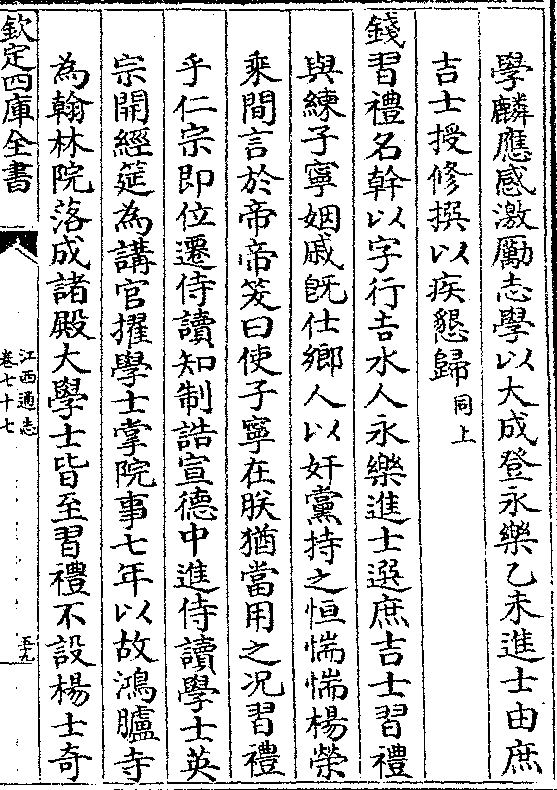 學麟應感激勵志學以大成登永樂乙未進士由庶
吉士授修撰以疾懇歸同上
錢習禮名幹以字行吉水人永樂進士選庶吉士習禮
與練子寧姻戚既仕鄉人以奸黨持之恒惴惴楊榮
乘間言於帝帝笑曰使子寧在朕猶當用之况習禮
乎仁宗即位遷侍讀知制誥宣德中進侍讀學士英
宗開經筵為講官擢學士掌院事七年以故鴻臚寺
為翰林院落成諸殿大學士皆至習禮不設楊士奇
欽定四庫全書
江西通志
卷七十七
五十九